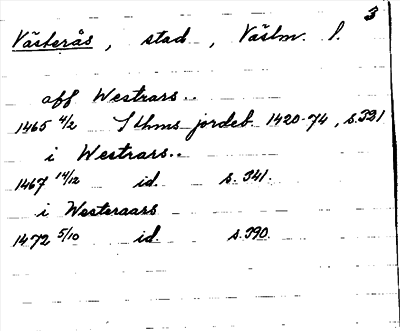 3
Västerås, stad, Västm. l.
aff Westrars..
1465 4/2 Sthms jordeb. 1420-74, s.321
i Westrars..
1467 14/12 id. s. 341.
i Westeraars
1472 5/10 id. s. 390.